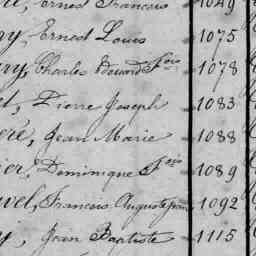 Ernest Francois 1049
Ernest Louis 1075
Charles Edouard Fois 1078
Pierre Joseph 1083
Jean Marie 1088
Dominique Fois 1089
Francois Auguste 1092
Jean Baptiste 1115